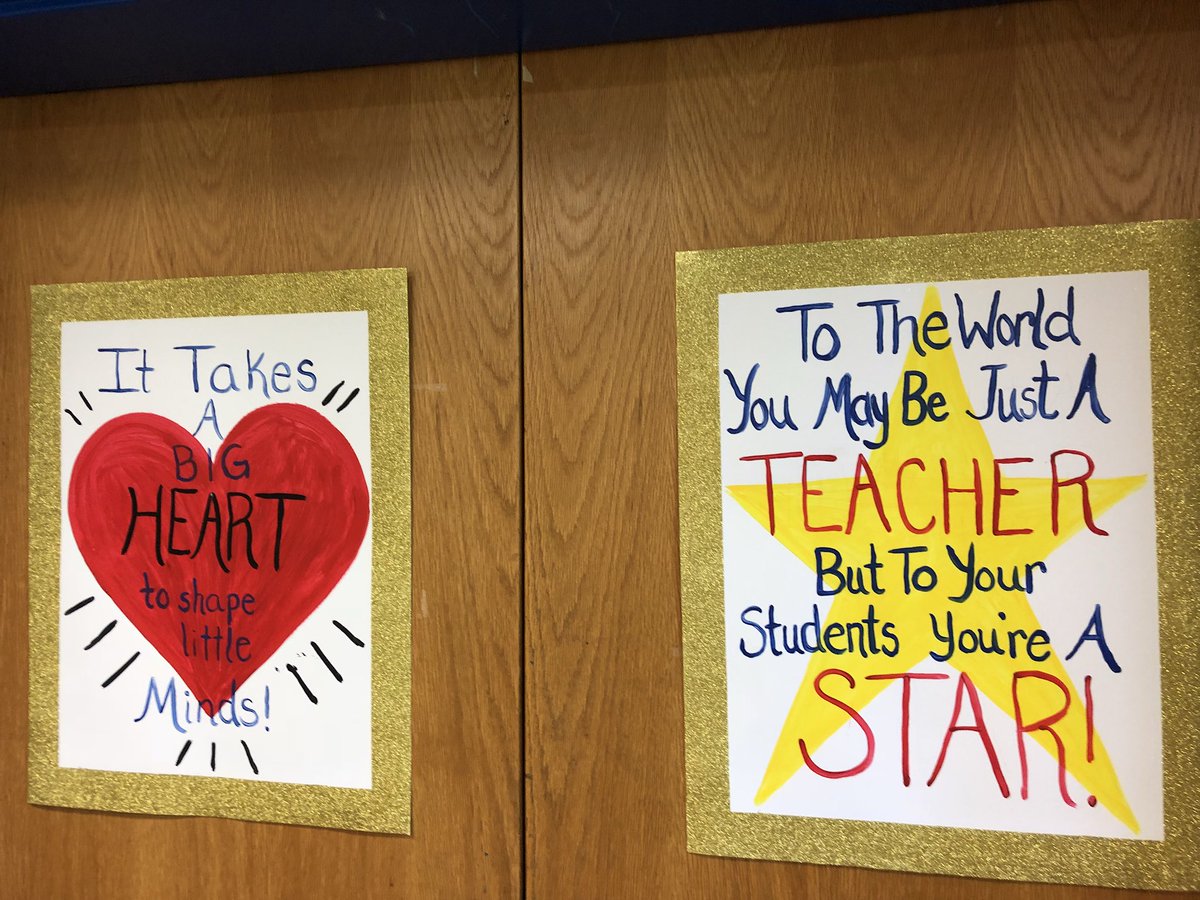 It Takes
A
BIG
HEART
to shape
little
Minds!
To The World
You May Be Just A
TEACHER
But To Your
Students You're A
STAR!